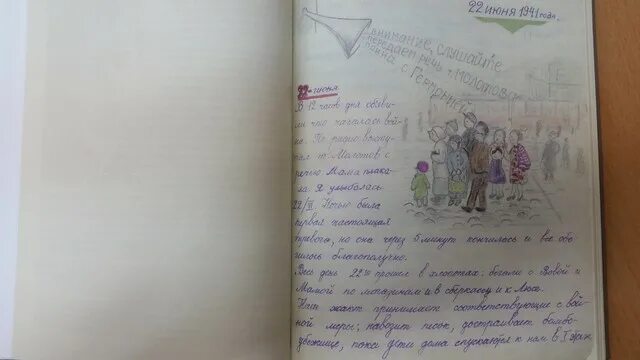 22 июня 1941 года.
Внимание, слушайте
передаёт речь т. Молотова
война с Германией
22 - июня
В 12 часов дня объяви-
ли что началась вой-
на. По радио высту-
пал т. Молотов с
речью Мама плака-
ла. Я улыбалась
Ночью была
первая настоящая
тревога, но она через 5 минут кончилась и все обо-
шлось благополучно.
Весь день 22 прошел в хлопотах: бегали с Вовой и
Мамой по магазинам и в сберкассу и к Люсе.
Наш жакт принимает соответствующие с вой-
ной меры: наводит песок, достраивает бомбо-
убежище, пока дети дома спускаются к нам в I этаж